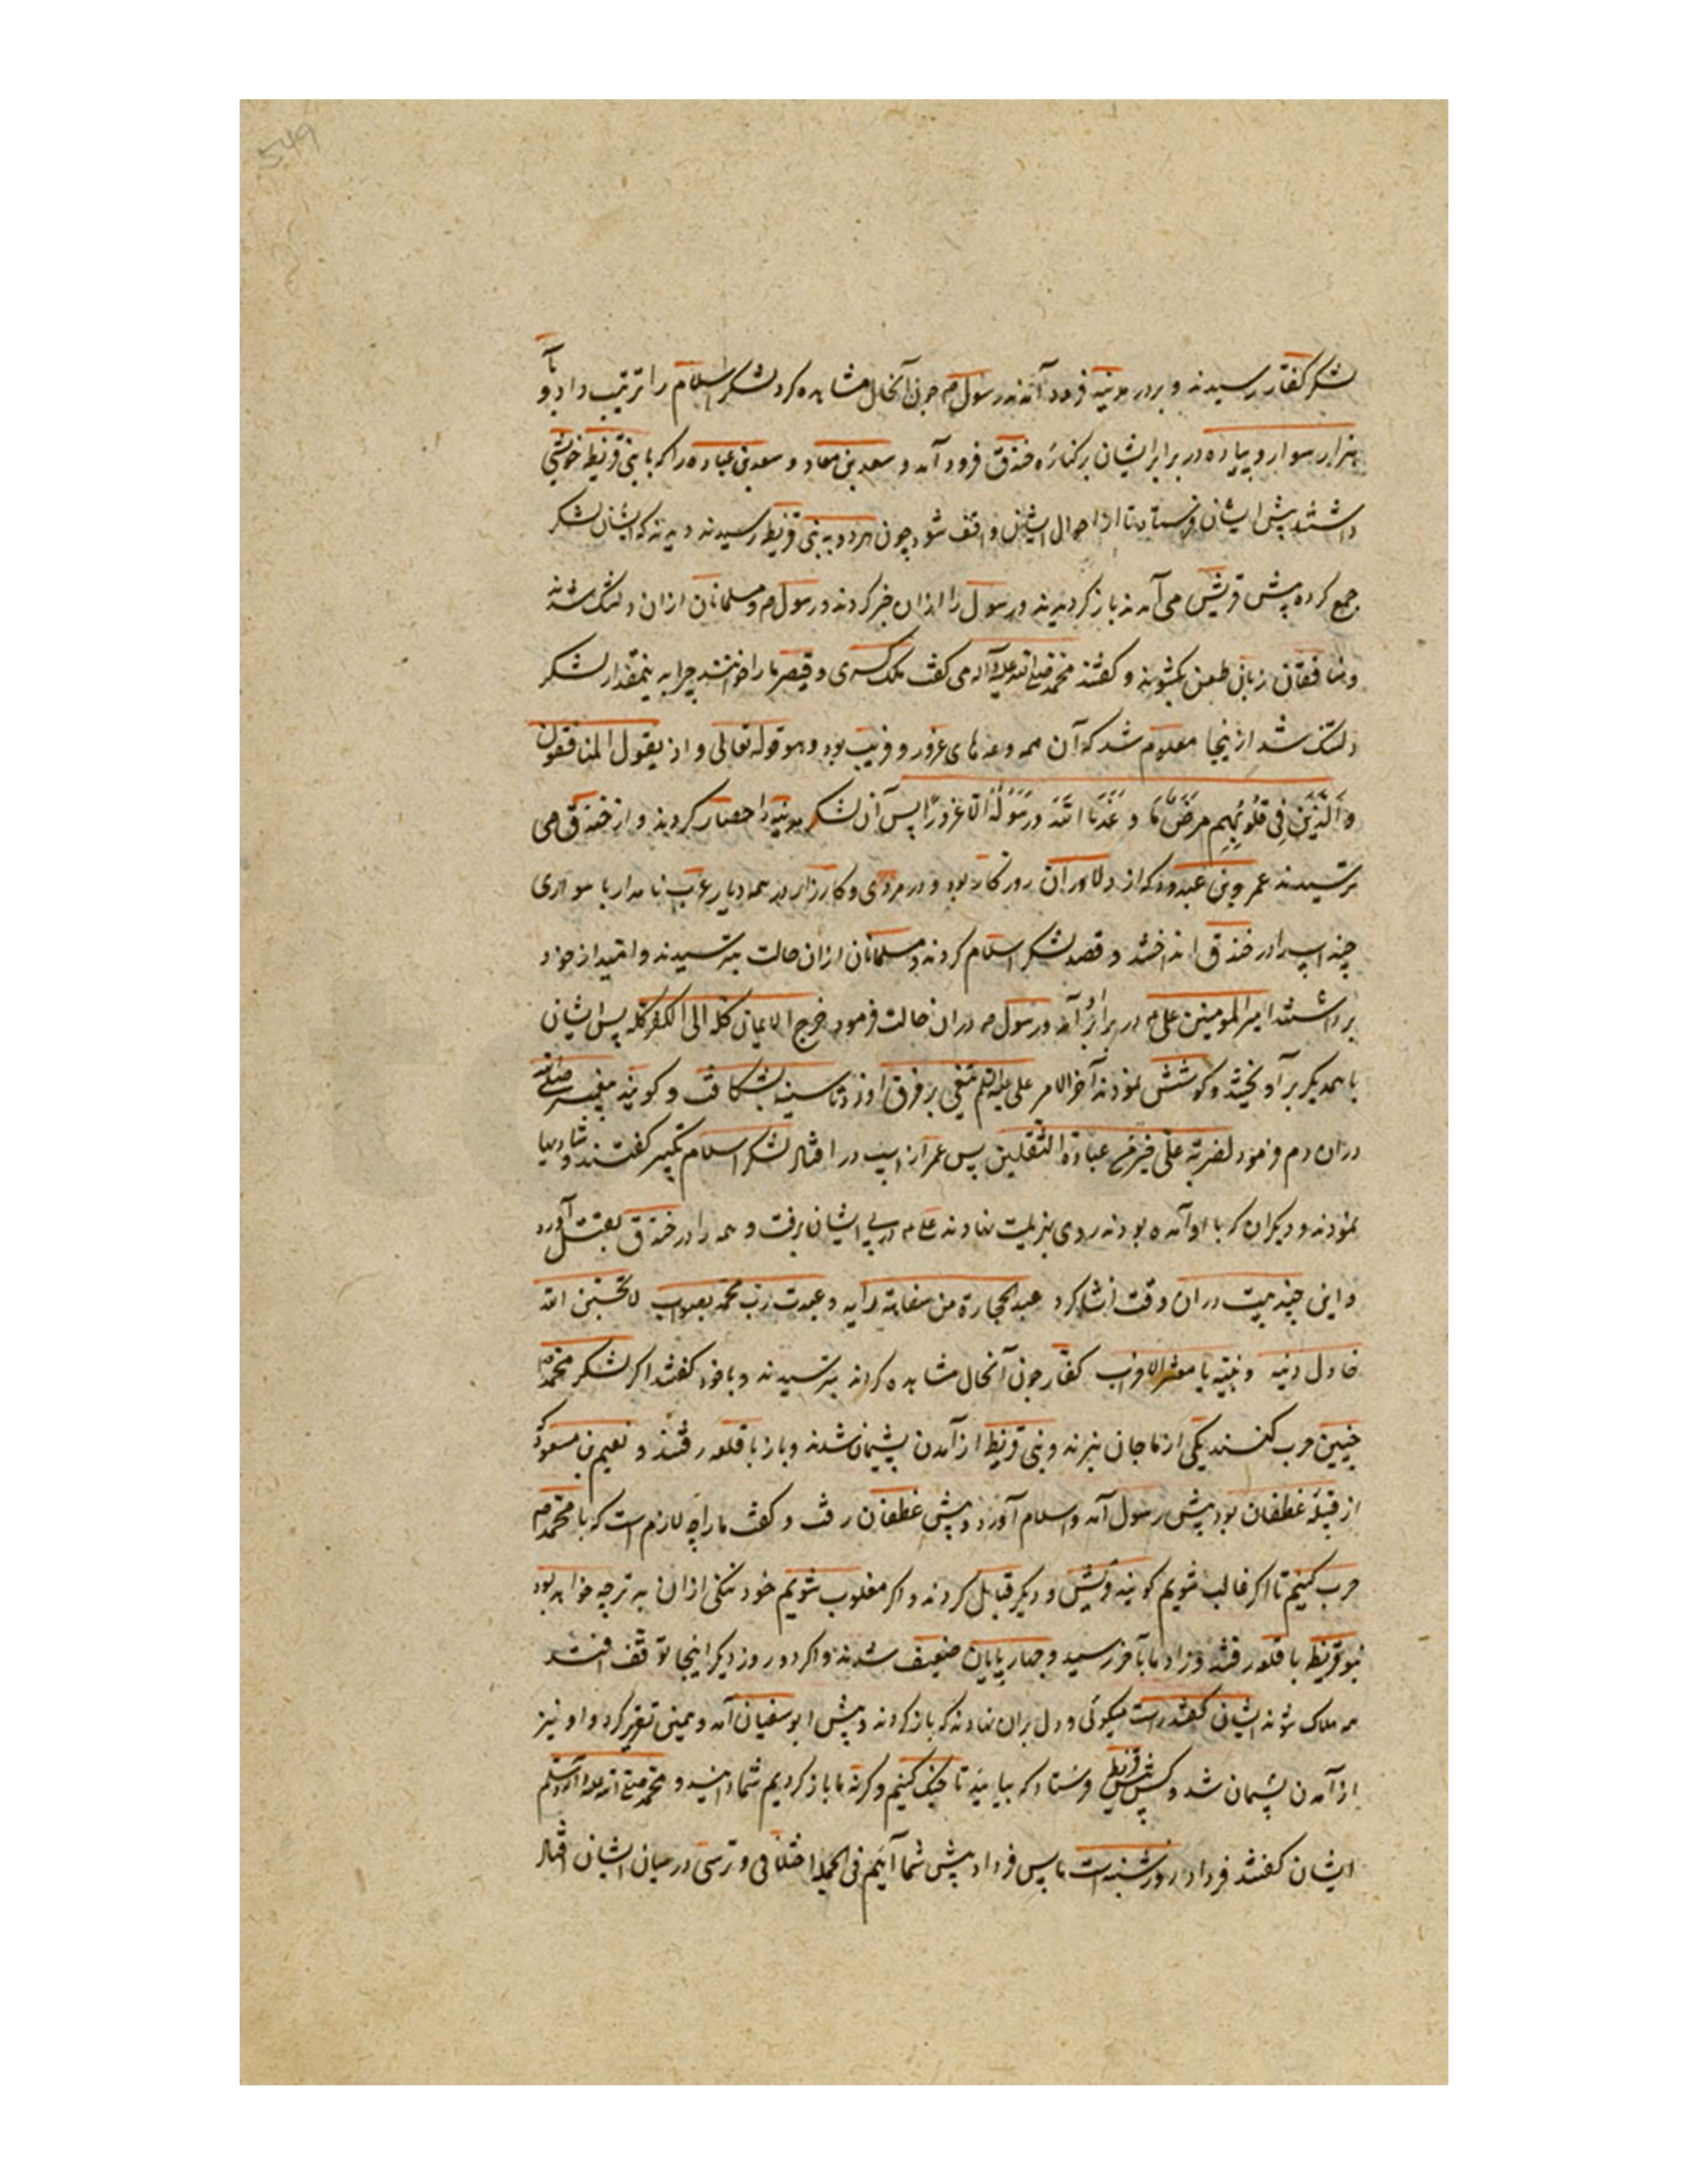 549
لشکر کفار رسیدند و بر در مدینه فرود آمدند رسول م چون آنحال مشاهده کرد لشکر اسلام را ترتیب داد و با
هزار سوار و پیاده در برابر ایشان بر کنارهٔ خندق فرود آمد و سعد بن معاد و سعد بن عباده را که با بنی قریظه خویشی
داشتند پیش ایشان فرستاد تا از احوال ایشان واقف شود چون هر دو به بنی قریظه رسیدند دیدند که ایشان لشکر
جمع کرده پیش قریش می آمدند باز کردیدند و رسول را ازان خبر کردند و رسول م و مسلمانان ازان دلتنک شدند
و منافقان زبان طعن بکشودند و کفتند محمد صلی الله علیه و آله می کفت ملک کسری و قیصر ما را خواهند چرا به ینمقدار لشکر
دلتنک شد ازینجا معلوم شد که آن همه وعدهای غرور و فریب بود و هو قوله تعالی و اذ یقول المنافقون
وَالَّذِینَ فِی قُلُوبِهِم مَرَضٌ مَا وَعَدَنَا اللّهُ وَرَسُولُهُ اِلَّا غُرُورًا پس آن لشکر مدینه را حصار کردند و از خندق می
ترسیدند عمرو بن عبدود که از دلاوران روزکار بود و در مردی و کارزار در همه دیار عرب نامدار با سواری
چند اسپ را در خندق انداختند و قصد لشکر اسلام کردند و مسلمانان ازان حالت بترسیدند و امید از خود
برداشتند امیر المومنین علی م در برابر آمد و رسول م دران حالت فرمود خرج الایمان کله الی الکفر کله پس ایشان
با همدیکر برآویختند و کوشش نمودند آخر الامر علی علیه السلم تیغی بر فرق او زد تا سینه بشکافت و کویند پیغمبر صلی الله
دران دم فرمود لضربة علی خیر من عبادة الثقلین پس عمر از اسپ در افتاد لشکر اسلام تکبیر کفتند و شادیها
نمودند و دیکران که با او آمده بودند روی بهزیمت نهادند علی م در پی ایشان برفت و همه را در خندق بقتل آورد
و این چند بیت دران وقت انشا کرد عبد الحجارة من سفاهة رایه و عبدت رب محمد بصواب لا تحسبن الله
خاذل دینه و نبیه یا معشر الاحزاب کفار چون آنحال مشاهده کردند بترسیدند و با خود کفتند اکر لشکر محمد م
چنین حرب کنند یکی از ما جان نبرند و بنی قریظه از آمدن پشیمان شدند و باز با قلعه رفتند و نعیم بن مسعود
از قبیلهٔ غطفان بود پیش رسول آمد و اسلام آورد و پیش غطفان رفت و کفت ما را چه لازم است که با محمد م
حرب کنیم تا اکر غالب شویم کویند قریش و دیکر قبایل کردند و اکر مغلوب شویم خود ننکی ازان بدتر چه خواهد بود
بنو قریظه با قلعه رفتند و زاد ما بآخر رسید و چهارپایان ضعیف شدند و اکر دو روز دیکر اینجا توقف افتد
همه هلاک شوند ایشان کفتند راست میکوئی و دل بران نهادند که باز کردند و پیش ابو سفیان آمد و همین تقریر کرد و او نیز
از آمدن پشیمان شد و کس پیش قریظه فرستاد که بیایید تا جنک کنیم و کرنه ما باز کردیم شما دانید و محمد صلی الله علیه و آله و سلم
ایشان کفتند فردا روز شنبه است ما پس فردا پیش شما آئیم فی الجمله اختلافی و ترسی در میان ایشان افتاد